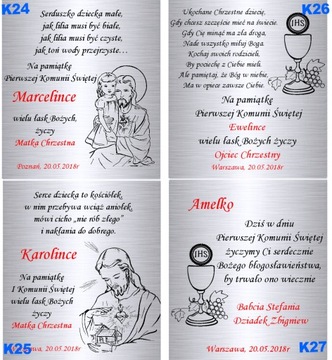 K24
Serduszko dziecka małe,
jak lilia musi być białe,
jak lilia musi być czyste,
jak toń wody przejrzyste…
Na pamiątkę
Pierwszej Komunii Świętej
Marcelince
wielu łask Bożych,
życzy
Matka Chrzestna
Poznań, 20.05.2018r
K26
Ukochane Chrzestne dziecię,
Gdy chcesz szczęście mieć na świecie.
Gdy Cię minąć ma zła droga,
Nade wszystko miłuj Boga
Kochaj swoich rodzicieli,
By pociechę z Ciebie mieli.
Ale pamiętaj, że Bóg w niebie,
Ma w opiece zawsze Ciebie.
IHS
Na pamiątkę
Pierwszej Komunii Świętej
Ewelince
wielu łask Bożych życzy
Ojciec Chrzestny
Warszawa, 20.05.2018r
Serce dziecka to kościółek,
w nim przebywa wciąż aniołek,
mówi cicho „nie rób złego”
i nakłania do dobrego.
Karolince
Na pamiątkę
I Komunii Świętej
wielu łask Bożych
życzy
Matka Chrzestna
K25
20.05.2018r
Amelko
Dziś w dniu
Pierwszej Komunii Świętej
życzymy Ci serdecznie
Bożego błogosławieństwa,
by trwało ono wiecznie
IHS
Babcia Stefania
Dziadek Zbigniew
Warszawa, 20.05.2018r
K27